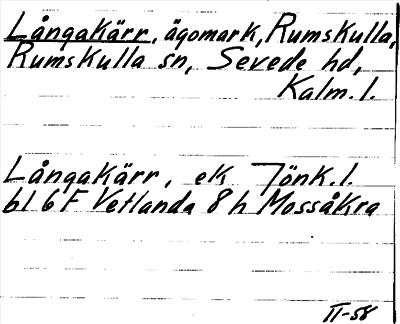 Långakärr, ägomark, Rumskulla,
Rumskulla sn, Sevede hd,
Kalm. l.
Långakärr, ek Jönk. l.
bl 6 F Vetlanda 8 h Mossåkra
II-58